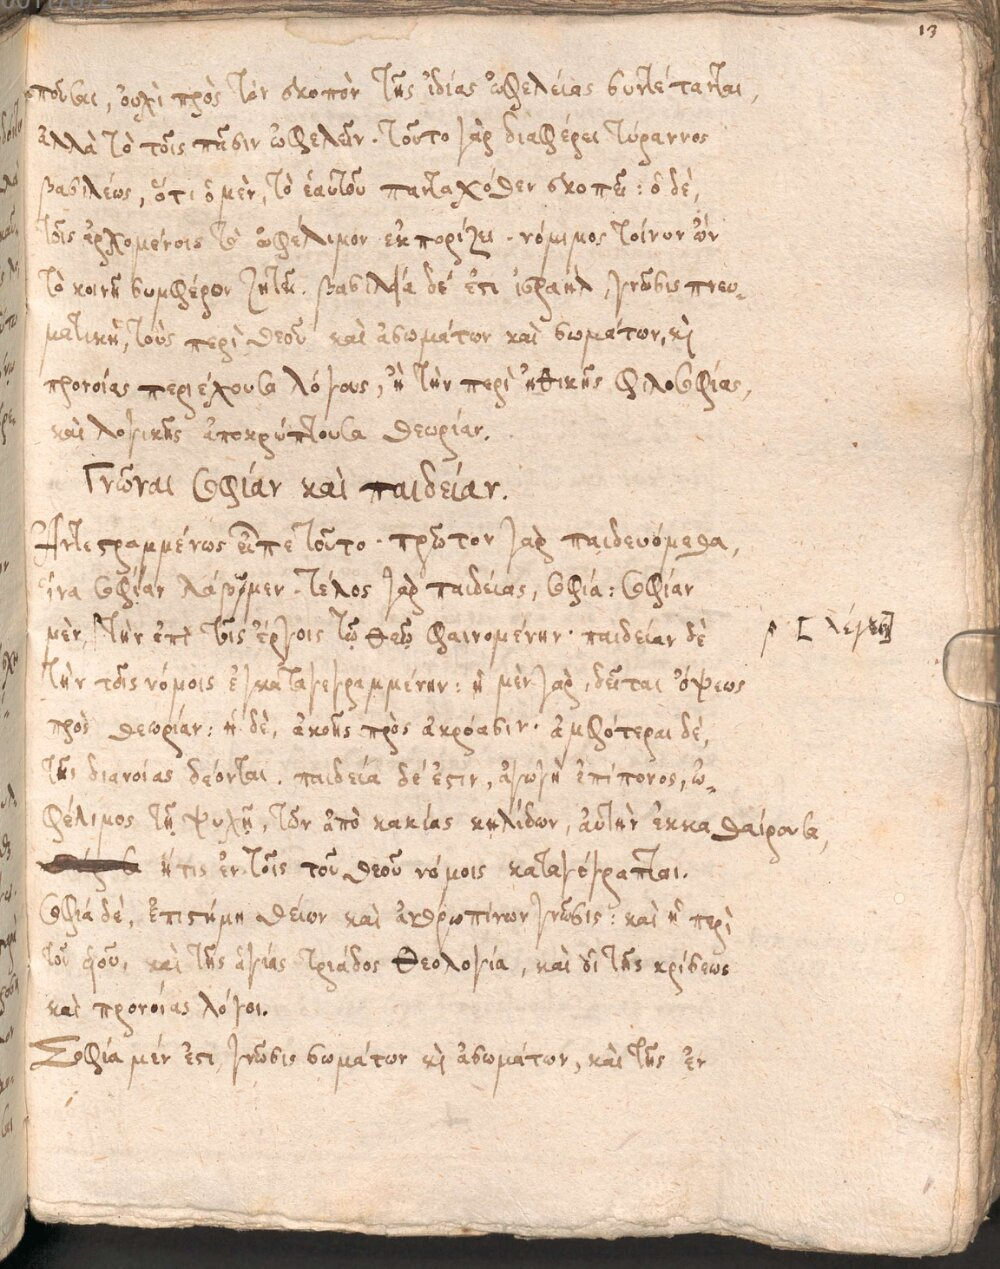 13
πουσι, οὐχὶ πρὸς τὸν σκοπὸν τῆς ἰδίας ὠφελείας συντέταται,
ἀλλὰ τὸ τοῖς πᾶσιν ὠφελεῖν · τοῦτο γὰρ διαφέρει τύραννος
βασιλέως, ὅτι ὁ μὲν, τὸ ἑαυτοῦ πανταχόθεν σκοπεῖ : ὁ δὲ,
τοῖς ἀρχομένοις τὸ ὠφέλιμον ἐκπορίζει · νόμιμος τοίνυν ὢν
τὸ κοινῇ συμφέρον ζητεῖ. βασιλεία δέ ἐστι ἰσραὴλ, γνῶσις πνευ-
ματικὴ, τοὺς περὶ θεοῦ καὶ ἀσωμάτων καὶ σωμάτων, κὶ
προνοίας περιέχουσα λόγους, ἢ τὴν περὶ ἠθικῆς φιλοσοφίας,
καὶ λογικῆς ἀποκρύπτουσα θεωρίαν.
Γνῶναι σοφίαν καὶ παιδείαν.
Ἀντεστραμμένως εἶπε τοῦτο · πρῶτον γὰρ παιδευόμεθα,
ἵνα σοφίαν λάβωμεν · τέλος γὰρ παιδείας, σοφία : σοφίαν
μὲν, τὴν ἐπὶ τοῖς ἔργοις τῷ θεῷ φαινομένην · παιδείαν δὲ
[ λέγει]
τὴν τοῖς νόμοις ἐγκαταγεγραμμένην : ἡ μὲν γὰρ, δεῖται ὄψεως
πρὸς θεωρίαν : ἡ δὲ, ἀκοῆς πρὸς ἀκρόασιν · ἀμφότεραι δὲ,
τῆς διανοίας δέονται. παιδεία δέ ἐστιν, ἀγωγὴ ἐπίπονος, ὠ-
φέλιμος τῇ ψυχῇ, τῶν ἀπὸ κακίας κηλίδων, αὐτὴν ἐκκαθαίρουσα,
ἥτις ἐν τοῖς τοῦ θεοῦ νόμοις καταγέγραπται.
σοφία δὲ, ἐπιστήμη θείων καὶ ἀνθρωπίνων γνῶσις : καὶ ἡ περὶ
τοῦ καὶ τῆς ἁγίας τριάδος θεολογία, καὶ οἱ τῆς κρίσεως
καὶ προνοίας λόγοι.
Σοφία μέν ἐστι γνῶσις σωμάτων κὶ ἀσωμάτων, καὶ τῆς ἐν